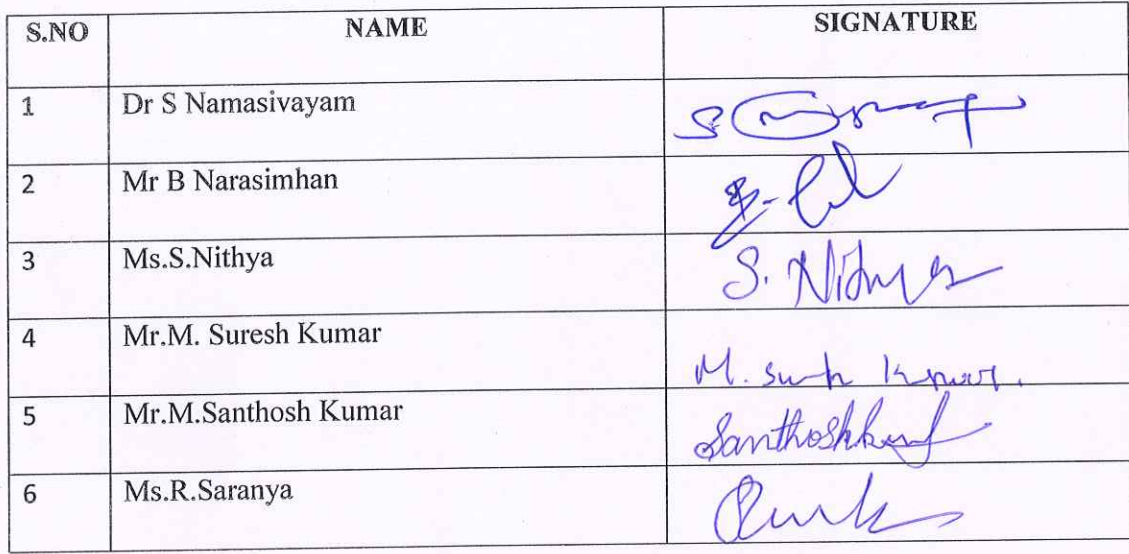 S.NO NAME SIGNATURE
1 Dr S Namasivayam
2 Mr B Narasimhan
3 Ms.S.Nithya S. Nithya
4 Mr.M. Suresh Kumar M. Suresh Kumar.
5 Mr.M.Santhosh Kumar Santhoshkumar
6 Ms.R.Saranya